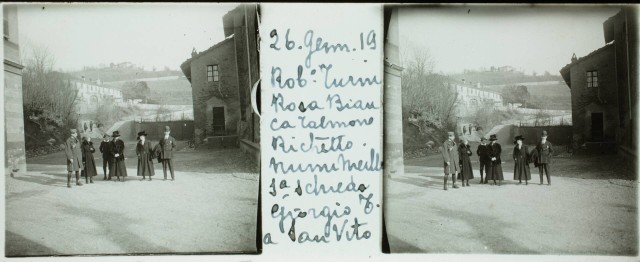 26. Genn. 19
Rob.º Turin
Rosa Bian
ca Talmone
Richetto
Numi Meille
Sª Scheda
Giorgio T.
a San Vito